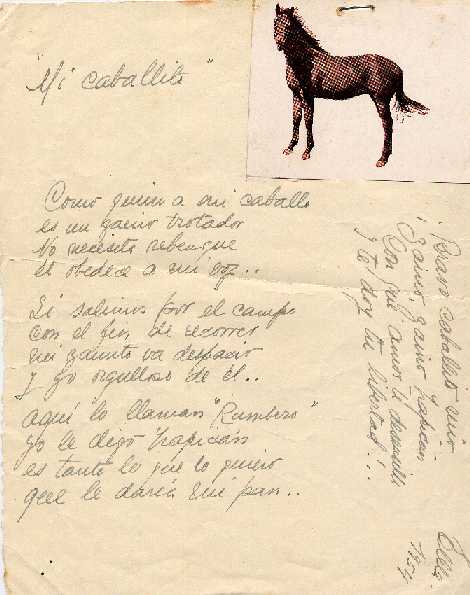 "Mi caballito"
Como quiero a mi caballo
es un zaino trotador
No necesita rebenque
él obedece a mi voz..
Si salimos por el campo
con el fin de recorrer
mi zainito va despacio
y yo orgulloso de él..
Aquí lo llaman "Rumbero"
yo le digo Zapicán
es tanto lo que lo quiero
que le daría mi pan..
Bravo caballito mío
¡Zaino, zaino Zapicán
Con qué amor te
y te doy tu libertad!...
1954